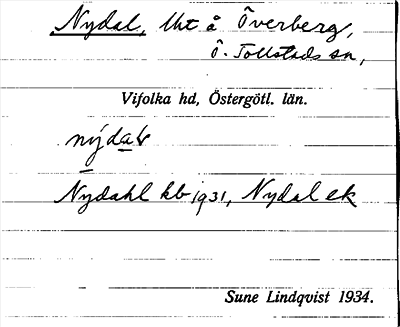 Nydal, lht å Överberg,
Ö. Tollstads sn,
Vifolka hd, Östergötl. län.
Nydahl kb 1931, Nydal ek
Sune Lindqvist 1934.